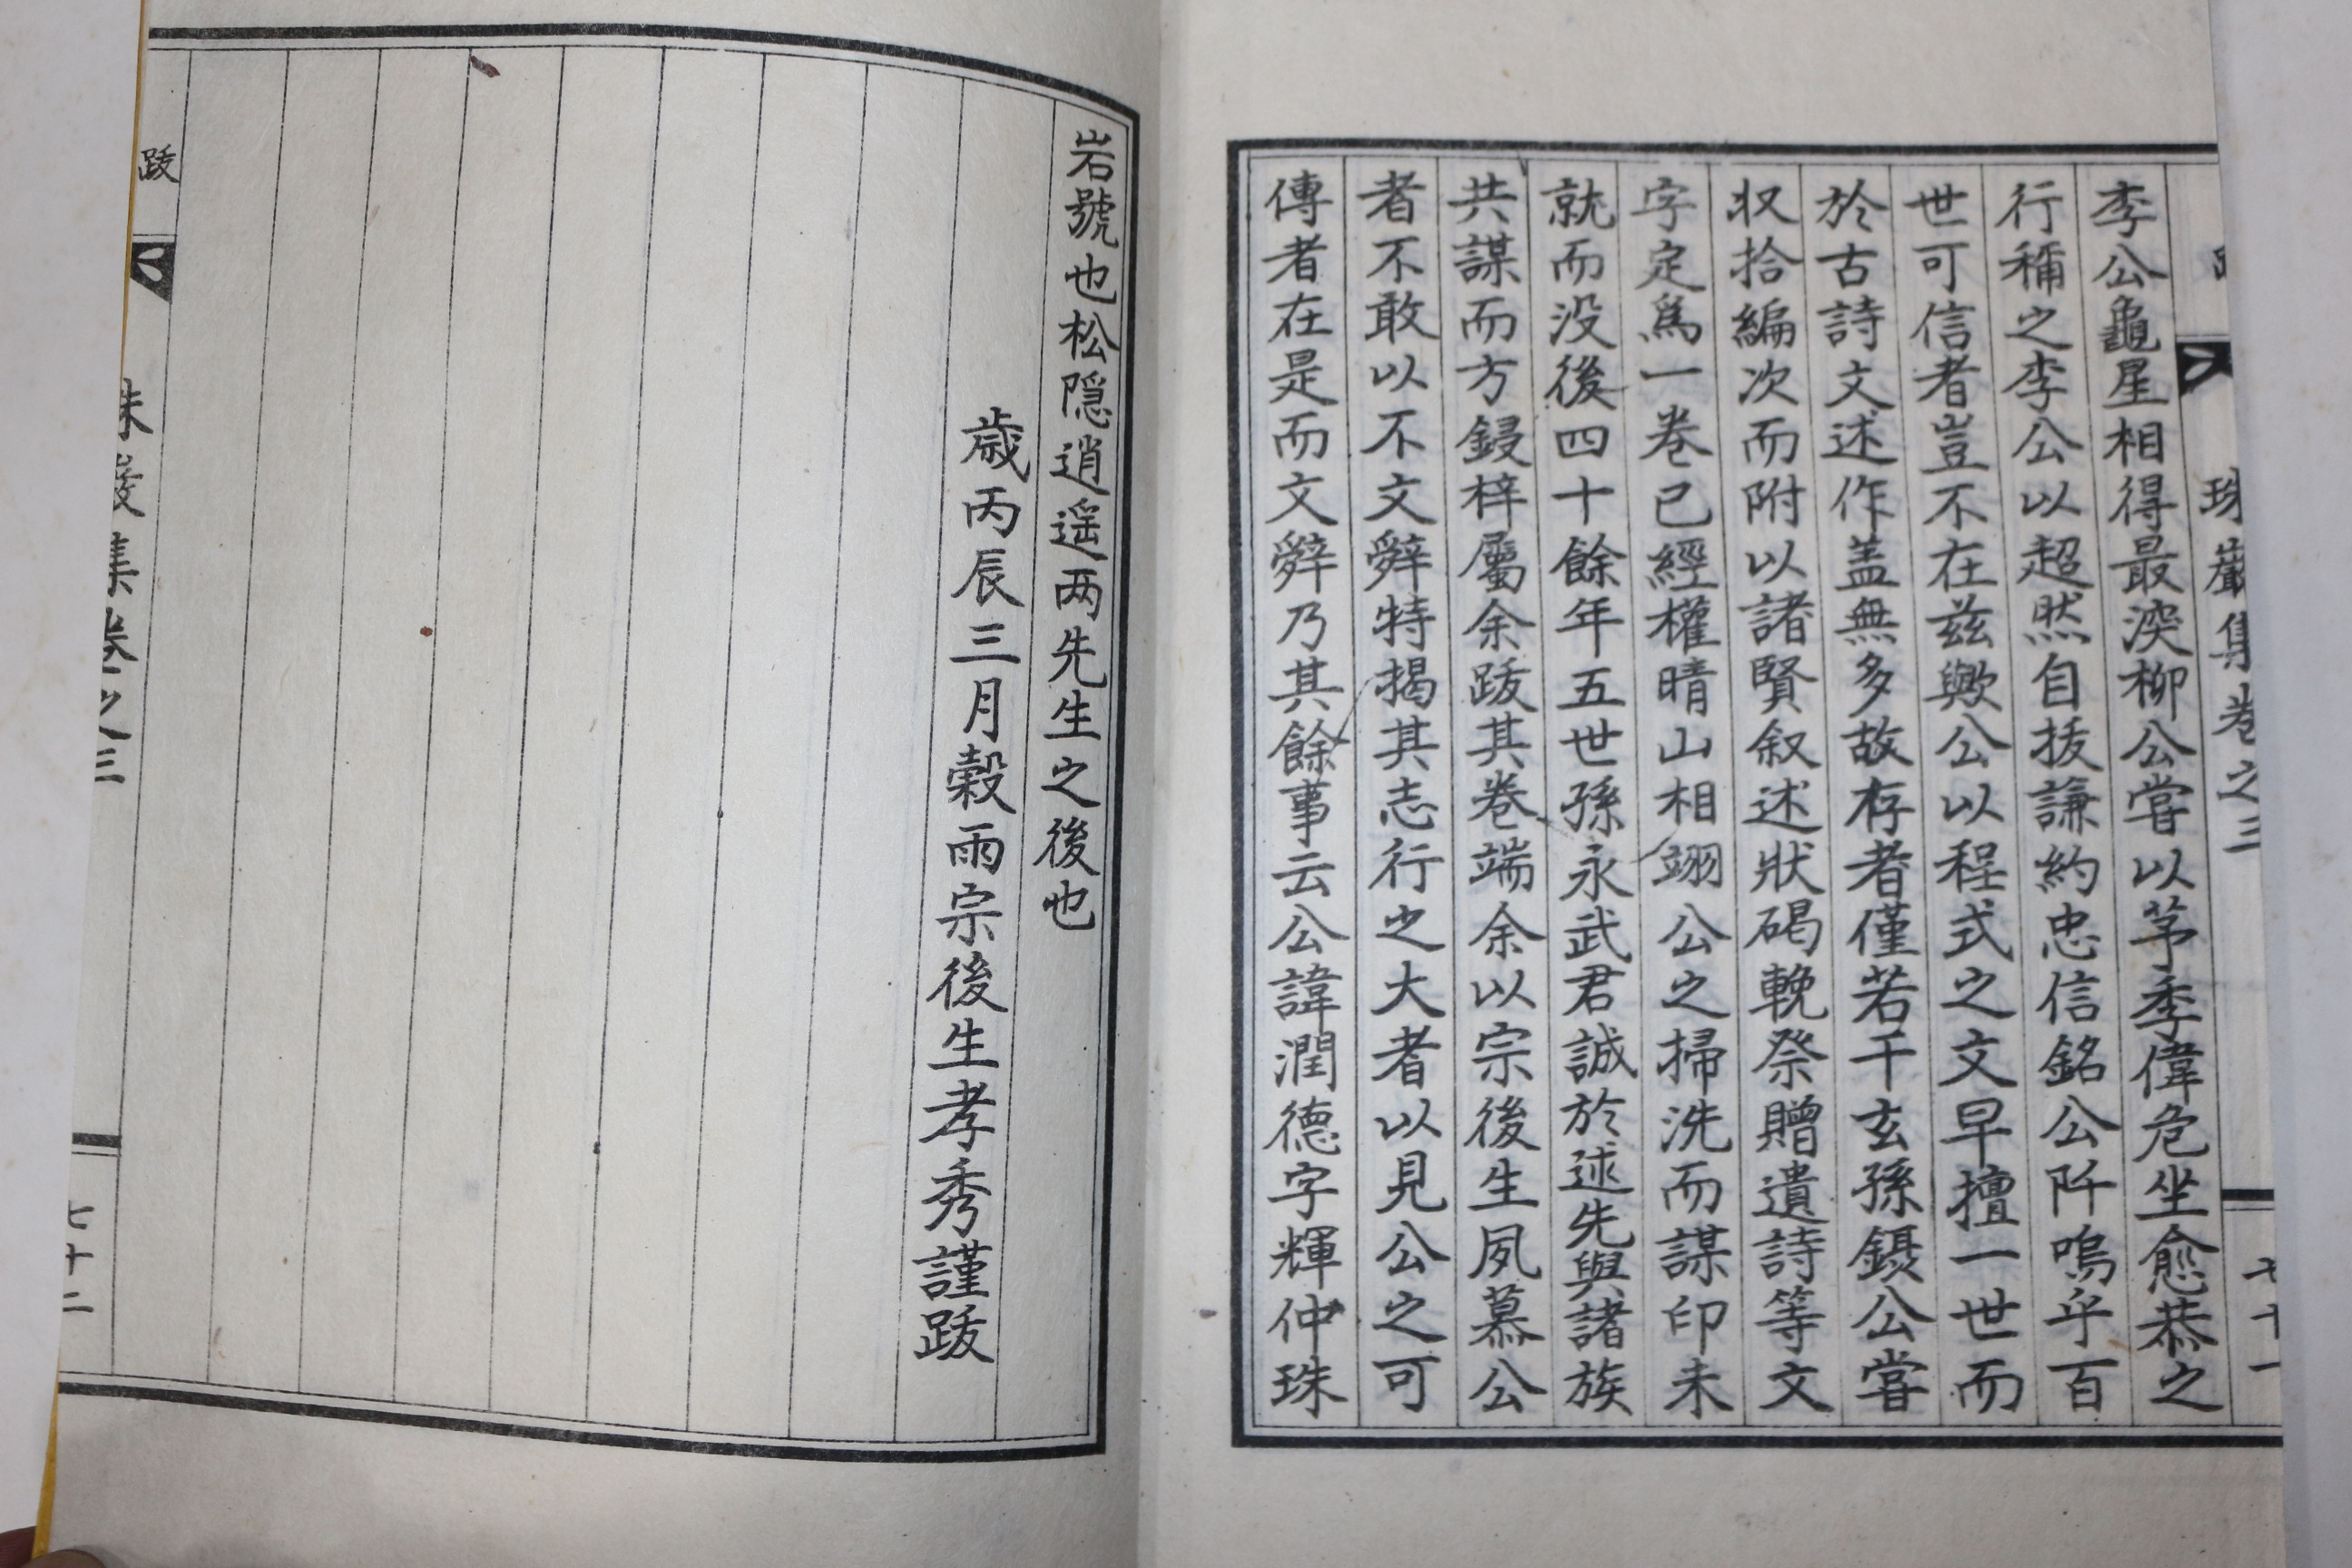 珠巖集卷之三
李公龜星相得最深柳公嘗以茅季偉危坐愈恭之
行稱之李公以超然自拔謙約忠信銘公阡嗚乎百
世可信者豈不在玆歟公以程式之文早擅一世而
於古詩文述作盖無多故存者僅若干玄孫鎭公嘗
収拾編次而附以諸賢叙述狀碣輓祭贈遺詩等文
字定爲一卷已經權晴山相翊公之掃洗而謀印未
就而没後四十餘年五世孫永武君誠於述先與諸族
共謀而方鋟梓屬余跋其卷端余以宗後生夙慕公
者不敢以不文辭特揭其志行之大者以見公之可
傳者在是而文辭乃其餘事云公諱潤德字輝仲珠
岩號也松隠逍遥两先生之後也
歳丙辰三月榖雨宗後生孝秀謹跋
跋
集卷之三
七十二